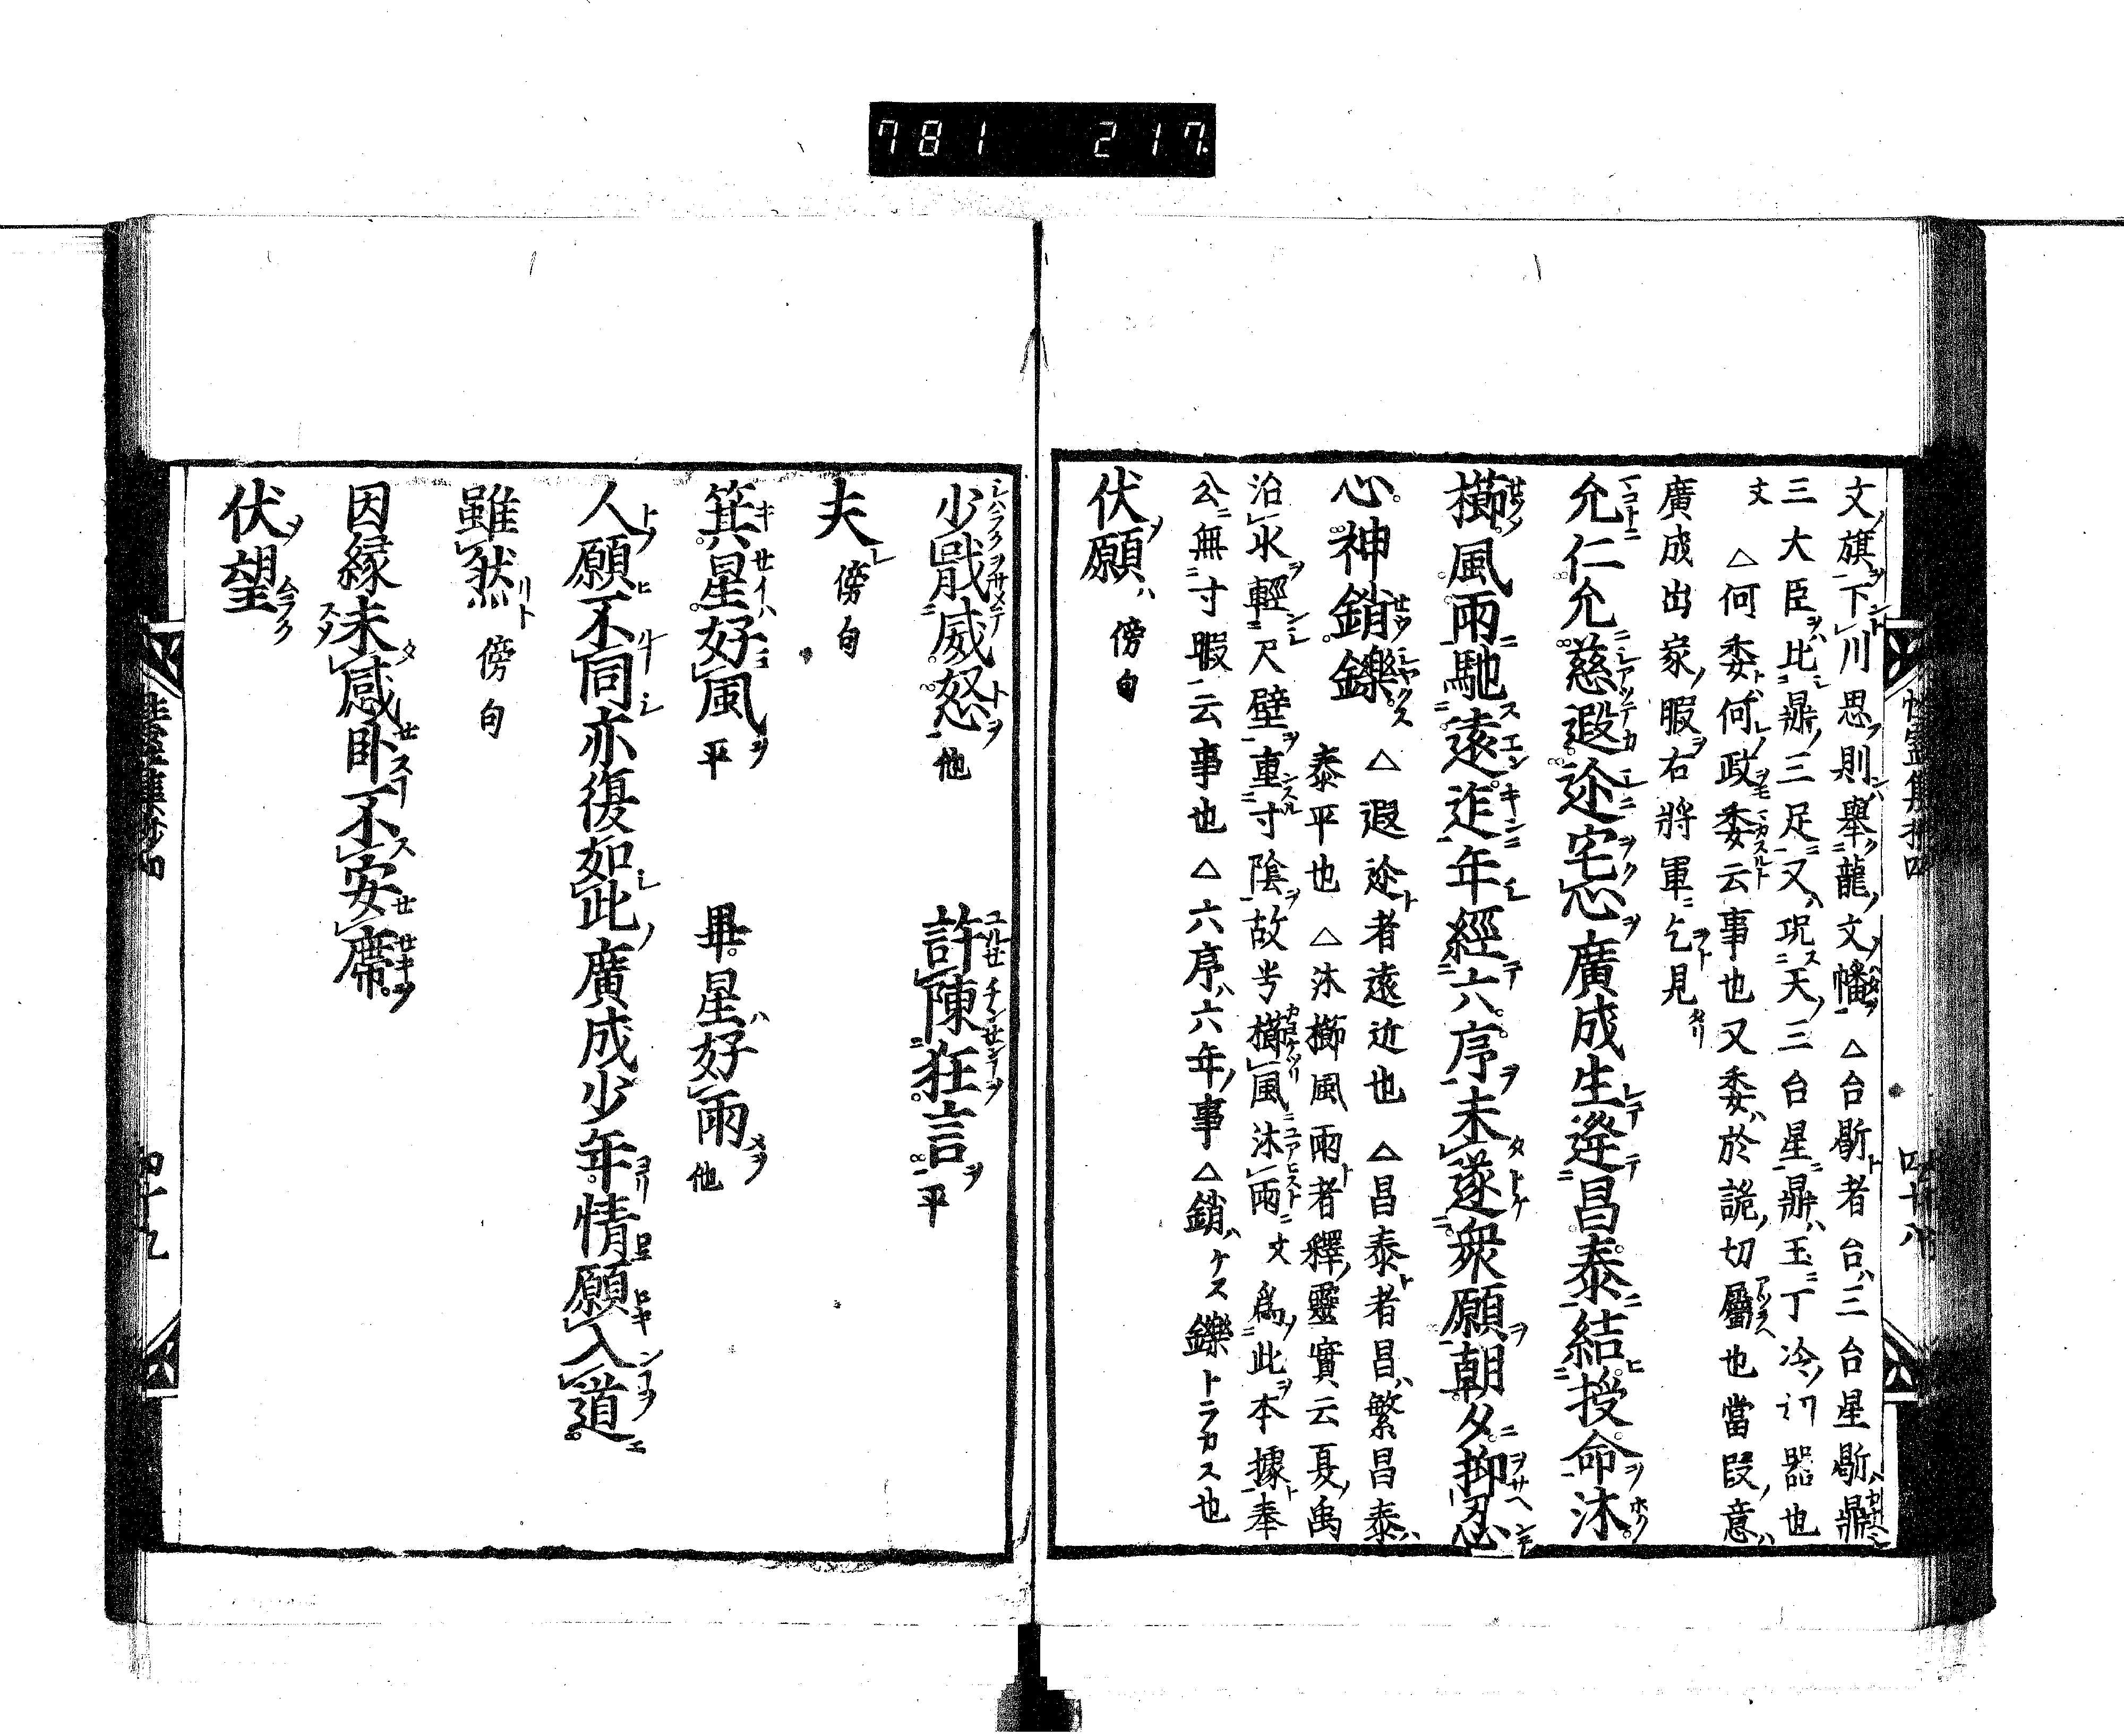 781 217
文旗下川思則舉龍文幡△台斷者台三台星斷鼎
三大臣比鼎三足又況天三台星鼎玉丁冷切器也
文 △何委何政委云事也又委於詭切屬也當段意
廣成出家暇右將軍乞見
允仁允慈遐迩宅心廣成生逢昌泰結授命沐
櫛風雨馳遠近年經六序未遂衆願朝夕抑忍
心神銷鑠 △遐迩者遠近也 △昌泰者昌繁昌泰
泰平也 △沐櫛風雨者釋靈實云夏禹
治水輕尺璧重寸陰故櫛風沐雨文爲此本據奉
公無寸暇云事也△六序六年事△銷ケス鑠トラカス也
伏願 傍句
四十八
少戢威怒 他 許陳狂言 平
夫 傍句
箕星好風 平 畢星好雨 他
人願不同亦復如此廣成少年情願入道
雖然 傍句
因緣未感卧不安席
伏望
四十九